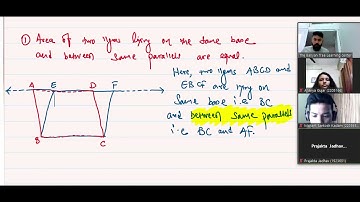 ① Area of two llgms lying on the same base
and between same parallels are equal.
A E D F
B C
Here, two llgms ABCD and
EBCF are lying on
Same base i.e BC
and between same parallels
i.e BC and AF.
Prajakta Jadhav...
Prajakta Jadhav (1923931)